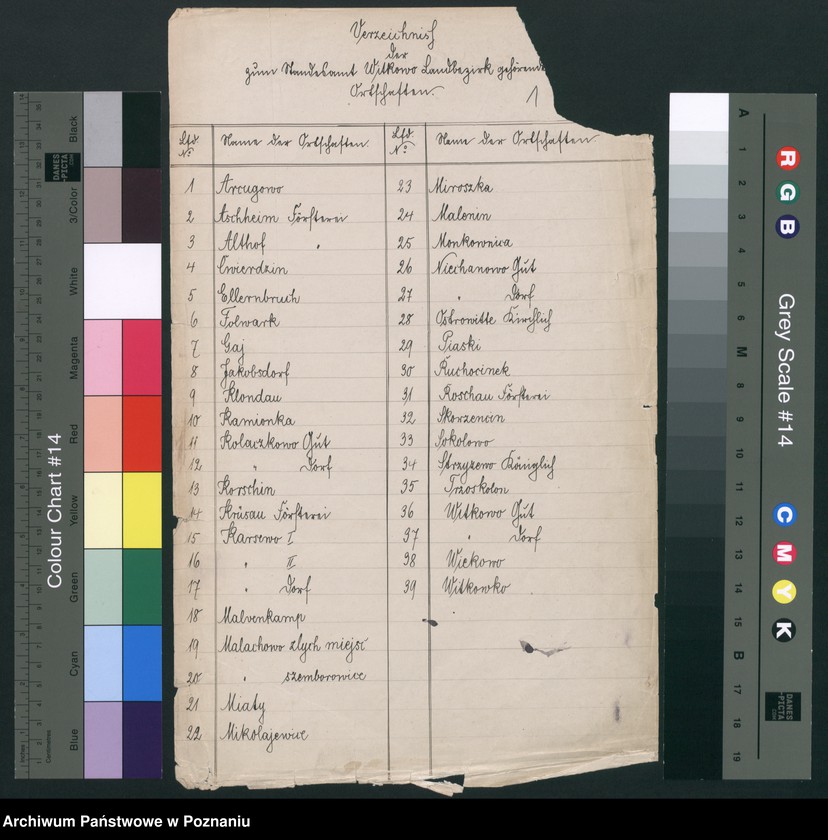 Verzeichniß
der
zum Standesamt Witkowo Landbezirk gehörende
Ortschaften.
1
Lfd. No. Name der Ortschaften. Lfd. No. Name der Ortschaften
1 Arcugowo 23 Miroszka
2 Aschheim Försterei 24 Malenin
3 Althof " 25 Monkownica
4 Cwierdzin 26 Niechanowo Gut
5 Ellernbruch 27 " Dorf
6 Folwark 28 Ostrowitte Kirchlich
7 Gaj 29 Piaski
8 Jakobsdorf 30 Ruchocinek
9 Klondau 31 Roschau Försterei
10 Kamionka 32 Skorzencin
11 Kolaczkowo Gut 33 Sokolowo
12 " Dorf 34 Strzyzewo Königlich
13 Korschin 35 Trzoskolon
14 Krüsau Försterei 36 Witkowo Gut
15 Karsewo I 37 " Dorf
16 " II 38 Wiekowo
17 " Dorf 39 Witkowko
18 Malvenkamp
19 Malachowo zlych miejsc
20 " szemborowice
21 Miaty
22 Mikolajewice
Colour Chart #14
Black
3/Color
White
Magenta
Red
Yellow
Green
Cyan
Blue
Inches
Centimetres
DANES
-PICTA
.COM
Grey Scale #14
R
G
B
C
M
Y
K
A
1
2
3
4
5
6
M
8
9
10
11
12
13
14
15
B
17
18
19
DANES
-PICTA
.COM
Archiwum Państwowe w Poznaniu